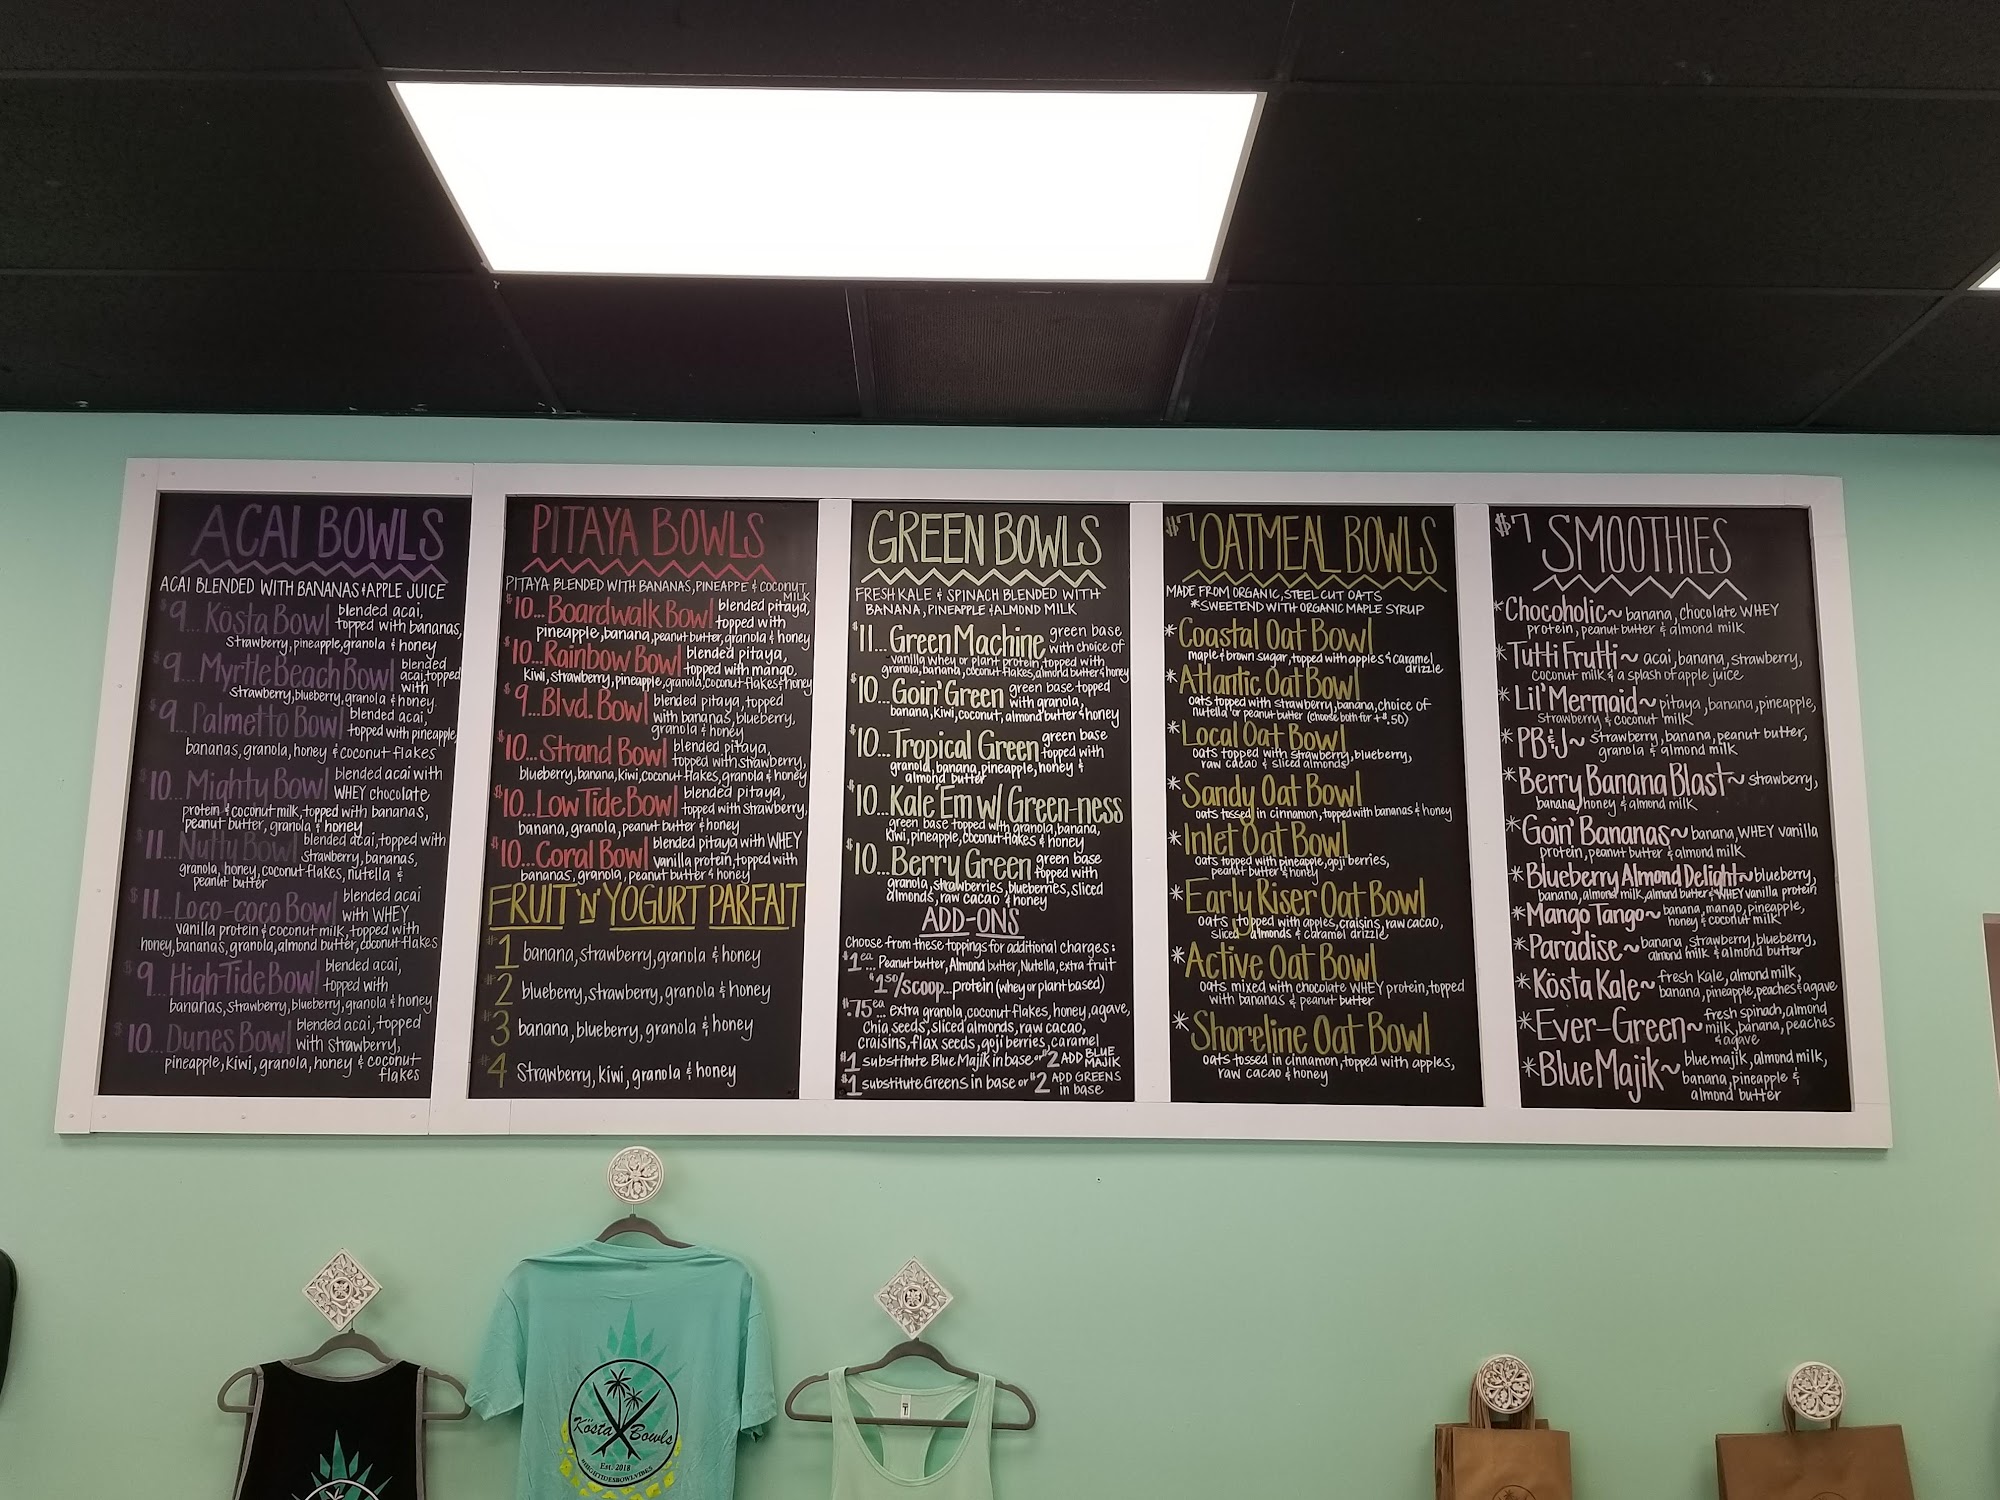 ACAI BOWLS
ACAI BLENDED WITH BANANAS & APPLE JUICE
$9...Kösta Bowl blended acai,
topped with bananas,
strawberry, pineapple, granola & honey
$9...Myrtle Beach Bowl blended
acai, topped
with
strawberry, blueberry, granola & honey.
$9...Palmetto Bowl blended acai,
topped with pineapple,
bananas, granola, honey & coconut flakes
$10...Mighty Bowl blended acai with
WHEY chocolate
protein & coconut milk, topped with bananas,
peanut butter, granola & honey
$11...Nutty Bowl blended acai, topped with
strawberry, bananas,
granola, honey, coconut flakes, nutella &
peanut butter
$11...Loco-coco Bowl blended acai
with WHEY
vanilla protein & coconut milk, topped with
honey, bananas, granola, almond butter, coconut flakes
$9...High Tide Bowl blended acai,
topped with
bananas, strawberry, blueberry, granola & honey
$10...Dunes Bowl blended acai, topped
with strawberry,
pineapple, kiwi, granola, honey & coconut
flakes
PITAYA BOWLS
PITAYA BLENDED WITH BANANAS, PINEAPPE & COCONUT
MILK
$10...Boardwalk Bowl blended pitaya,
topped with
pineapple, banana, peanut butter, granola & honey
$10...Rainbow Bowl blended pitaya,
topped with mango,
kiwi, strawberry, pineapple, granola, coconut flakes & honey
$9...Blvd. Bowl blended pitaya, topped
with bananas, blueberry,
granola & honey
$10...Strand Bowl blended pitaya,
topped with strawberry,
blueberry, banana, kiwi, coconut flakes, granola & honey
$10...Low Tide Bowl blended pitaya,
topped with strawberry,
banana, granola, peanut butter & honey
$10...Coral Bowl blended pitaya with WHEY
vanilla protein, topped with
bananas, granola, peanut butter & honey
FRUIT 'N' YOGURT PARFAIT
#1 banana, strawberry, granola & honey
#2 blueberry, strawberry, granola & honey
#3 banana, blueberry, granola & honey
#4 strawberry, kiwi, granola & honey
GREEN BOWLS
FRESH KALE & SPINACH BLENDED WITH
BANANA, PINEAPPLE & ALMOND MILK
$11...Green Machine green base
with choice of
vanilla whey or plant protein, topped with
granola, banana, coconut flakes, almond butter & honey
$10...Goin' Green green base topped
with granola,
banana, kiwi, coconut, almond butter & honey
$10...Tropical Green green base
topped with
granola, banana, pineapple, honey &
almond butter
$10...Kale 'Em w/ Green-ness
green base topped with granola, banana,
kiwi, pineapple, coconut flakes & honey
$10...Berry Green green base
topped with
granola, strawberries, blueberries, sliced
almonds, raw cacao & honey
ADD-ONS
Choose from these toppings for additional charges:
$1 ea... Peanut butter, Almond butter, Nutella, extra fruit
$1.50/scoop...protein (whey or plant based)
$.75 ea... extra granola, coconut flakes, honey, agave,
chia seeds, sliced almonds, raw cacao,
craisins, flax seeds, goji berries, caramel
$1 substitute Blue Majik in base or $2 ADD BLUE
MAJIK
$1 substitute Greens in base or $2 ADD GREENS
in base
$7 OATMEAL BOWLS
MADE FROM ORGANIC, STEEL CUT OATS
*SWEETEND WITH ORGANIC MAPLE SYRUP
*Coastal Oat Bowl
maple & brown sugar, topped with apples & caramel
drizzle
*Atlantic Oat Bowl
oats topped with strawberry, banana, choice of
nutella or peanut butter (choose both for +$.50)
*Local Oat Bowl
oats topped with strawberry, blueberry,
raw cacao & sliced almonds
*Sandy Oat Bowl
oats tossed in cinnamon, topped with bananas & honey
*Inlet Oat Bowl
oats topped with pineapple, goji berries,
peanut butter & honey
*Early Riser Oat Bowl
oats topped with apples, craisins, raw cacao,
sliced almonds & caramel drizzle
*Active Oat Bowl
oats mixed with chocolate WHEY protein, topped
with bananas & peanut butter
*Shoreline Oat Bowl
oats tossed in cinnamon, topped with apples,
raw cacao & honey
$7 SMOOTHIES
*Chocoholic~ banana, chocolate WHEY
protein, peanut butter & almond milk
*Tutti Frutti~ acai, banana, strawberry,
coconut milk & a splash of apple juice
*Lil' Mermaid~ pitaya, banana, pineapple,
strawberry & coconut milk
*PB&J~ strawberry, banana, peanut butter,
granola & almond milk
*Berry Banana Blast~ strawberry,
banana, honey & almond milk
*Goin' Bananas~ banana, WHEY vanilla
protein, peanut butter & almond milk
*Blueberry Almond Delight~ blueberry,
banana, almond milk, almond butter & WHEY vanilla protein
*Mango Tango~ banana, mango, pineapple,
honey & coconut milk
*Paradise~ banana, strawberry, blueberry,
almond milk & almond butter
*Kösta Kale~ fresh kale, almond milk,
banana, pineapple, peaches & agave
*Ever-Green~ fresh spinach, almond
milk, banana, peaches
& agave
*Blue Majik~ blue majik, almond milk,
banana, pineapple &
almond butter
Kösta Bowls
Est. 2018
#HIGHTIDESBOWLVIBES